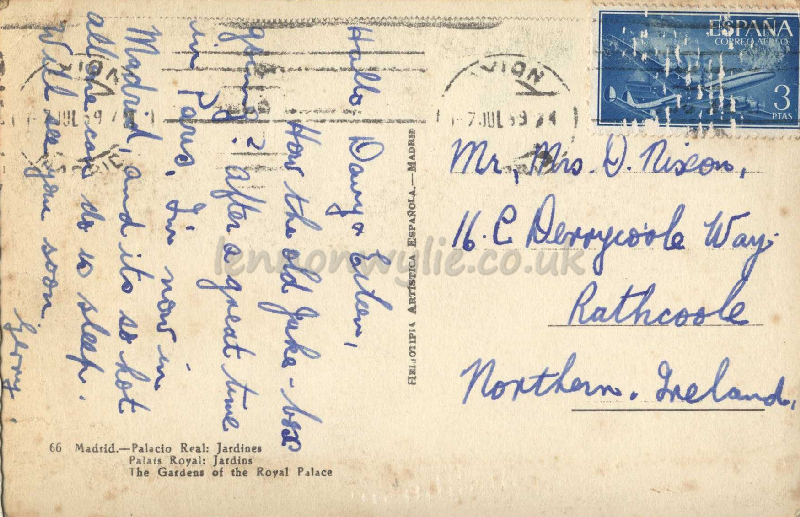 Hallo Davy & Eilen,
How the old juke-box
going? After a great time
in Paris, I'm now in
Madrid, and its so hot
all we can do is sleep.
Will see you soon
Gerry.
ESPAÑA
CORREO AEREO
3
PTAS
VION
7 JUL 59
VION
7 JUL 59
Mr, Mrs. D. Nixon,
16.C Derrycoole Way.
Rathcoole
Northern. Ireland.
HELIOTIPIA ARTÍSTICA ESPAÑOLA.—MADRID
lennonwylie.co.uk
66 Madrid.—Palacio Real: Jardines
Palais Royal: Jardins
The Gardens of the Royal Palace